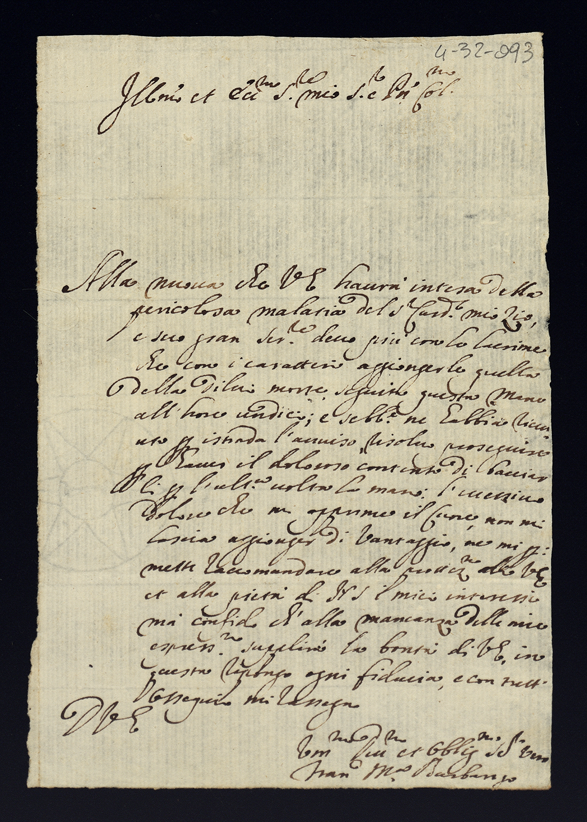 4-32-093
Illmo et Ecc.mo S.re mio S.r e Pn. Col.mo
Alla nuova che VE haurà intesa della
pericolosa malatia del S.r Card.le mio Zio,
e suo gran Ser.re devo più con le lacrime
che con i caratteri aggiongerle quella
della di lui morte seguita questa mane
all'hore undici; e sebb.ne ne habbia rice
uto p istrada l'avviso risolvo proseguire
p haver il doloroso contento di bacciar
li p l'ult.a volta la mano; l'eccessivo
dolore che mi opprime il Cuore, non mi
lascia aggionger di vantaggio, ne mi p
mette raccomandare alla protez.ne di VE
et alla pietà di NS i miei interessi
mi confido ch'alla mancanza delle mie
espress.ni supplirà la bontà di VE, in
questa ripongo ogni fiducia, e con tutt
ossequio mi rassegno
D VE
Um.mo Div.mo et Obblig.mo Se.r vero
Fran. M.a Barbarigo